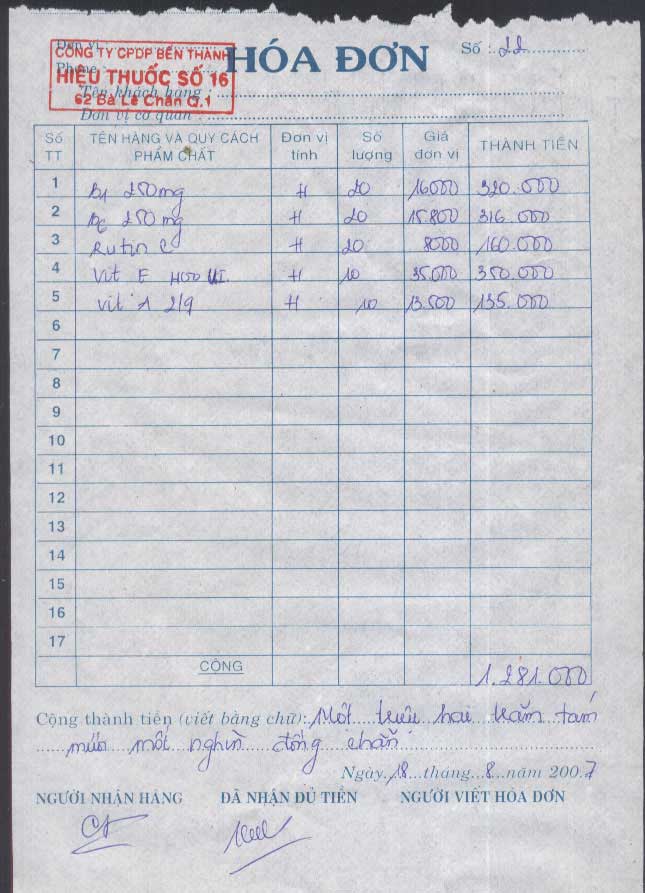 HÓA ĐƠN
Số : 22
Đơn vị
CÔNG TY CPDP BẾN THÀNH
Phone :
HIỆU THUỐC SỐ 16
Tên khách hàng :
62 Bà Lê Chân Q.1
Đơn vị cơ quan :
Số TT TÊN HÀNG VÀ QUY CÁCH PHẨM CHẤT Đơn vị tính Số lượng Giá đơn vị THÀNH TIỀN
1 B1 250mg H 20 16000 320.000
2 B6 250mg H 20 15.800 316.000
3 Rutin C H 20 8000 160.000
4 Vit E H 10 35000 350.000
5 Vit A H 10 13.500 135.000
6
7
8
9
10
11
12
13
14
15
16
17
CỘNG 1.281.000
Cộng thành tiền (viết bằng chữ): Một triệu hai trăm tám
mươi một nghìn đồng chẵn
Ngày 18 tháng 8 năm 2007
NGƯỜI NHẬN HÀNG ĐÃ NHẬN ĐỦ TIỀN NGƯỜI VIẾT HÓA ĐƠN